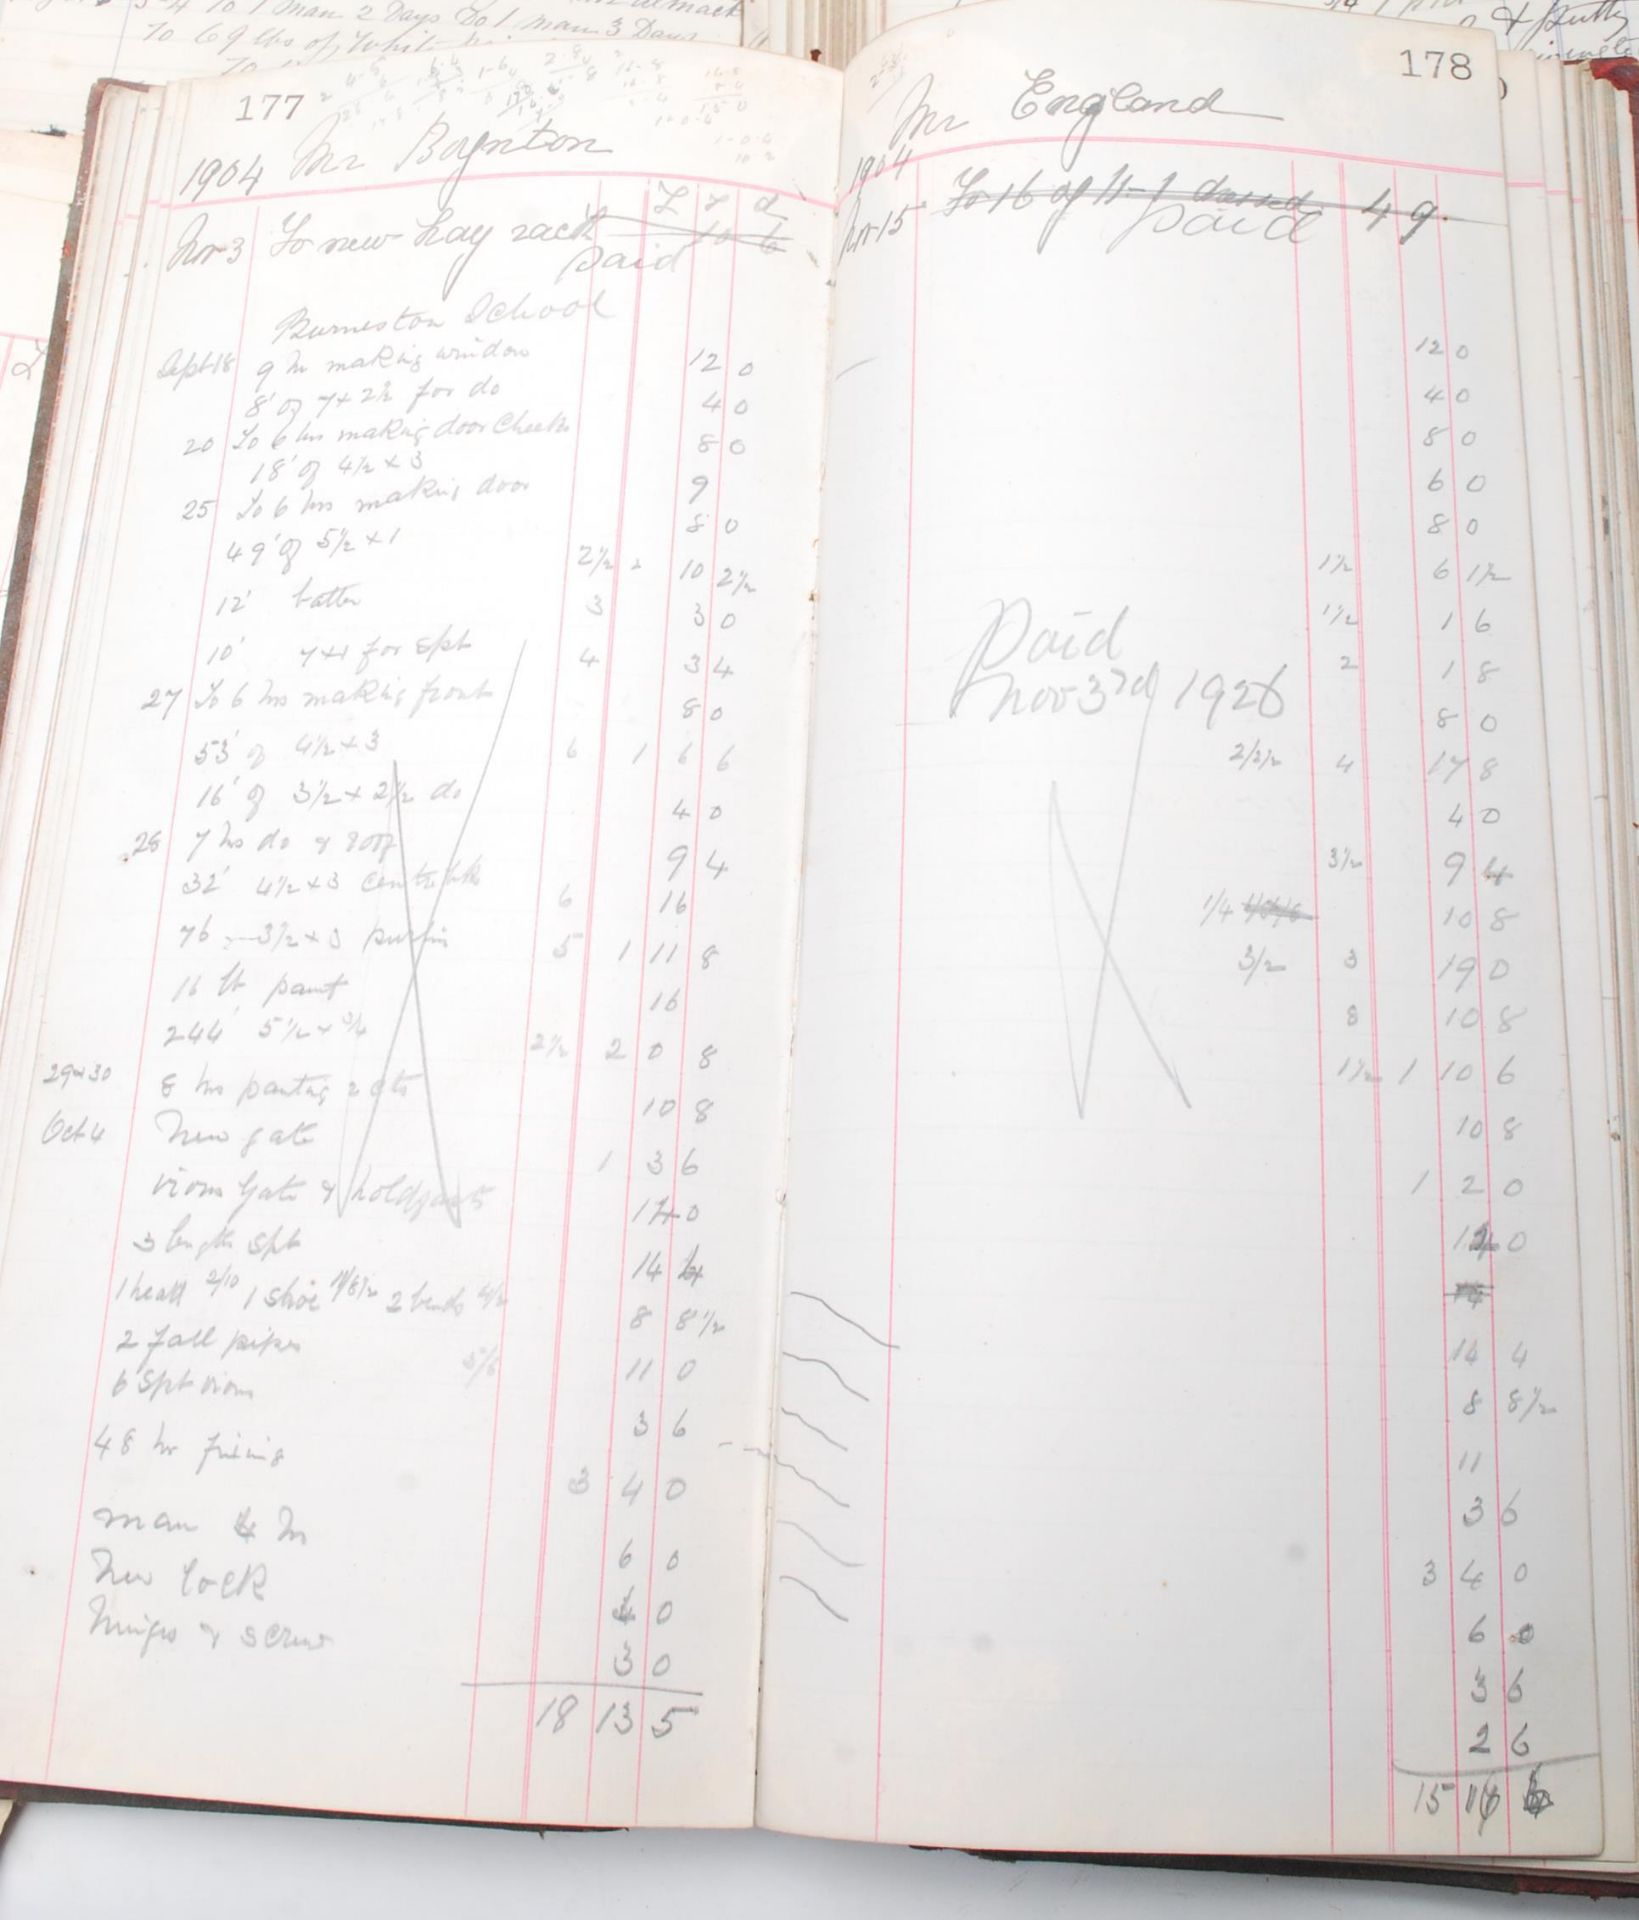 to 1 man 2 Days Do 1 man 3 Days
To 69 lbs of White
& putty
177
Mr Boynton
1904
£ s d
Nov 3 To new hay rack 10 6
paid
Burneston School
Sept 18 9 hr making window 12 0
8' of 7 x 2½ for do 4 0
20 To 6 hrs making door Cheeks 8 0
18' of 4½ x 3 9
25 To 6 hrs making door 8 0
49' of 5½ x 1 2½ 2 10 2½
12' batten 3 3 0
10' 7x1 for spt 4 3 4
27 To 6 hrs making front 8 0
53' of 4½ x 3 6 1 6 6
16' of 3½ x 2½ do 4 0
28 7 hrs do & roof 9 4
32' 4½ x 3 6 16
76 3½ x 3 purlin 5 1 11 8
16 lb paint 16
244' 5½ x ¾ 2½ 2 0 8
29 & 30 8 hrs painting 2 cts 10 8
Oct 4 New gate 1 3 6
irons gate & holdfasts 0
3 length spt 14 4
1 head 2/10 1 shoe 2 bends 4/2 8 8½
2 fall pipes 5/6 11 0
6 spt irons 3 6
48 hr fixing 3 4 0
man 4 hr 6 0
New lock 0
hinges & screws 3 0
18 13 5
178
Mr England
1904
Nov 15 To 16 of 11-1 4 9
paid
12 0
4 0
8 0
6 0
8 0
1½ 6 1½
1½ 1 6
2 1 8
8 0
Paid
Nov 3rd 1926
2/2½ 4 17 8
4 0
3½ 9 4
1/4 10 8
3/2 3 19 0
8 10 8
1½ 1 10 6
10 8
1 2 0
0
14 4
8 8½
11
3 6
3 4 0
6 0
3 6
2 6
15